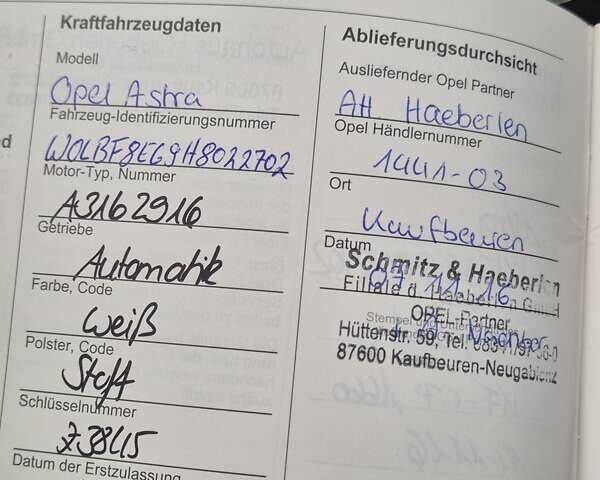 Kraftfahrzeugdaten
Modell
Opel Astra
Fahrzeug-Identifizierungsnummer
W0LBF8EG9H8022702
Motor-Typ, Nummer
A3162916
Getriebe
Automatik
Farbe, Code
weiß
Polster, Code
Stoff
Schlüsselnummer
Z3845
Datum der Erstzulassung
Ablieferungsdurchsicht
Ausliefernder Opel Partner
AH Haeberlen
Opel Händlernummer
1441-03
Ort
Kaufbeuren
Datum
Schmitz & Haeberlen
Filiale d.
OPEL-Partner
Hüttenstr. 59, Tel.
87600 Kaufbeuren-Neugablonz